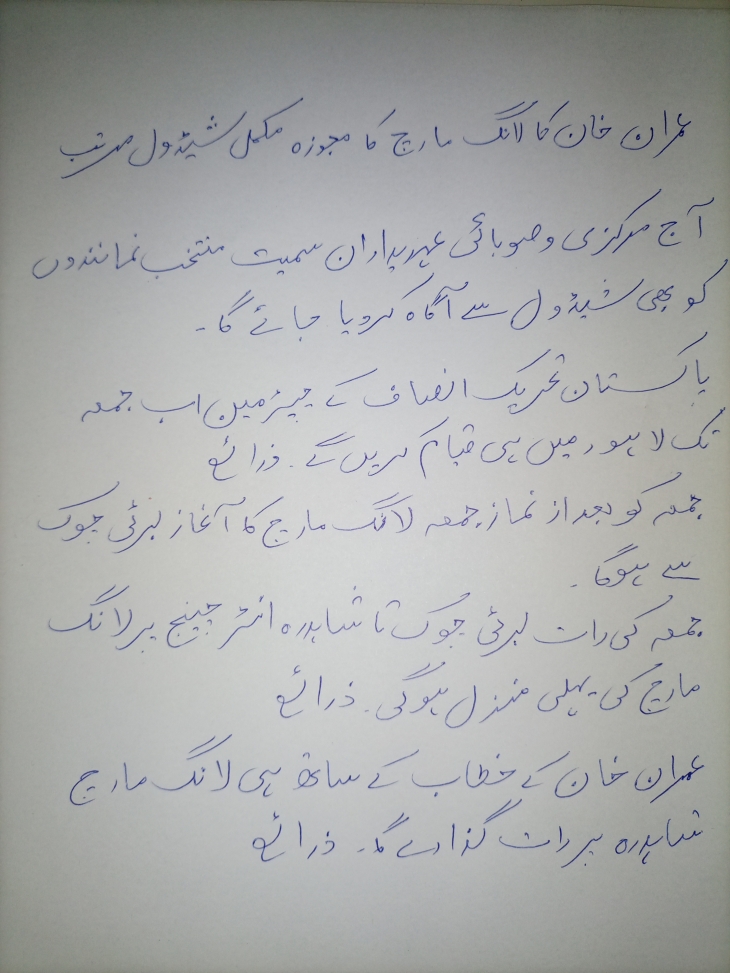 عمران خان کا لانگ مارچ کا مجوزہ مکمل شیڈول مرتب
آج مرکزی و صوبائی عہدیداران سمیت منتخب نمائندوں
کو بھی شیڈول سے آگاہ کردیا جائے گا۔
پاکستان تحریک انصاف کے چیئرمین اب جمعہ
تک لاہور میں ہی قیام کریں گے۔ ذرائع
جمعہ کو بعد از نماز جمعہ لانگ مارچ کا آغاز لبرٹی چوک
سے ہوگا۔
جمعہ کی رات لبرٹی چوک تا شاہدرہ انٹر چینج پر لانگ
مارچ کی پہلی منزل ہوگی۔ ذرائع
عمران خان کے خطاب کے ساتھ ہی لانگ مارچ
شاہدرہ پر رات گذارے گا۔ ذرائع